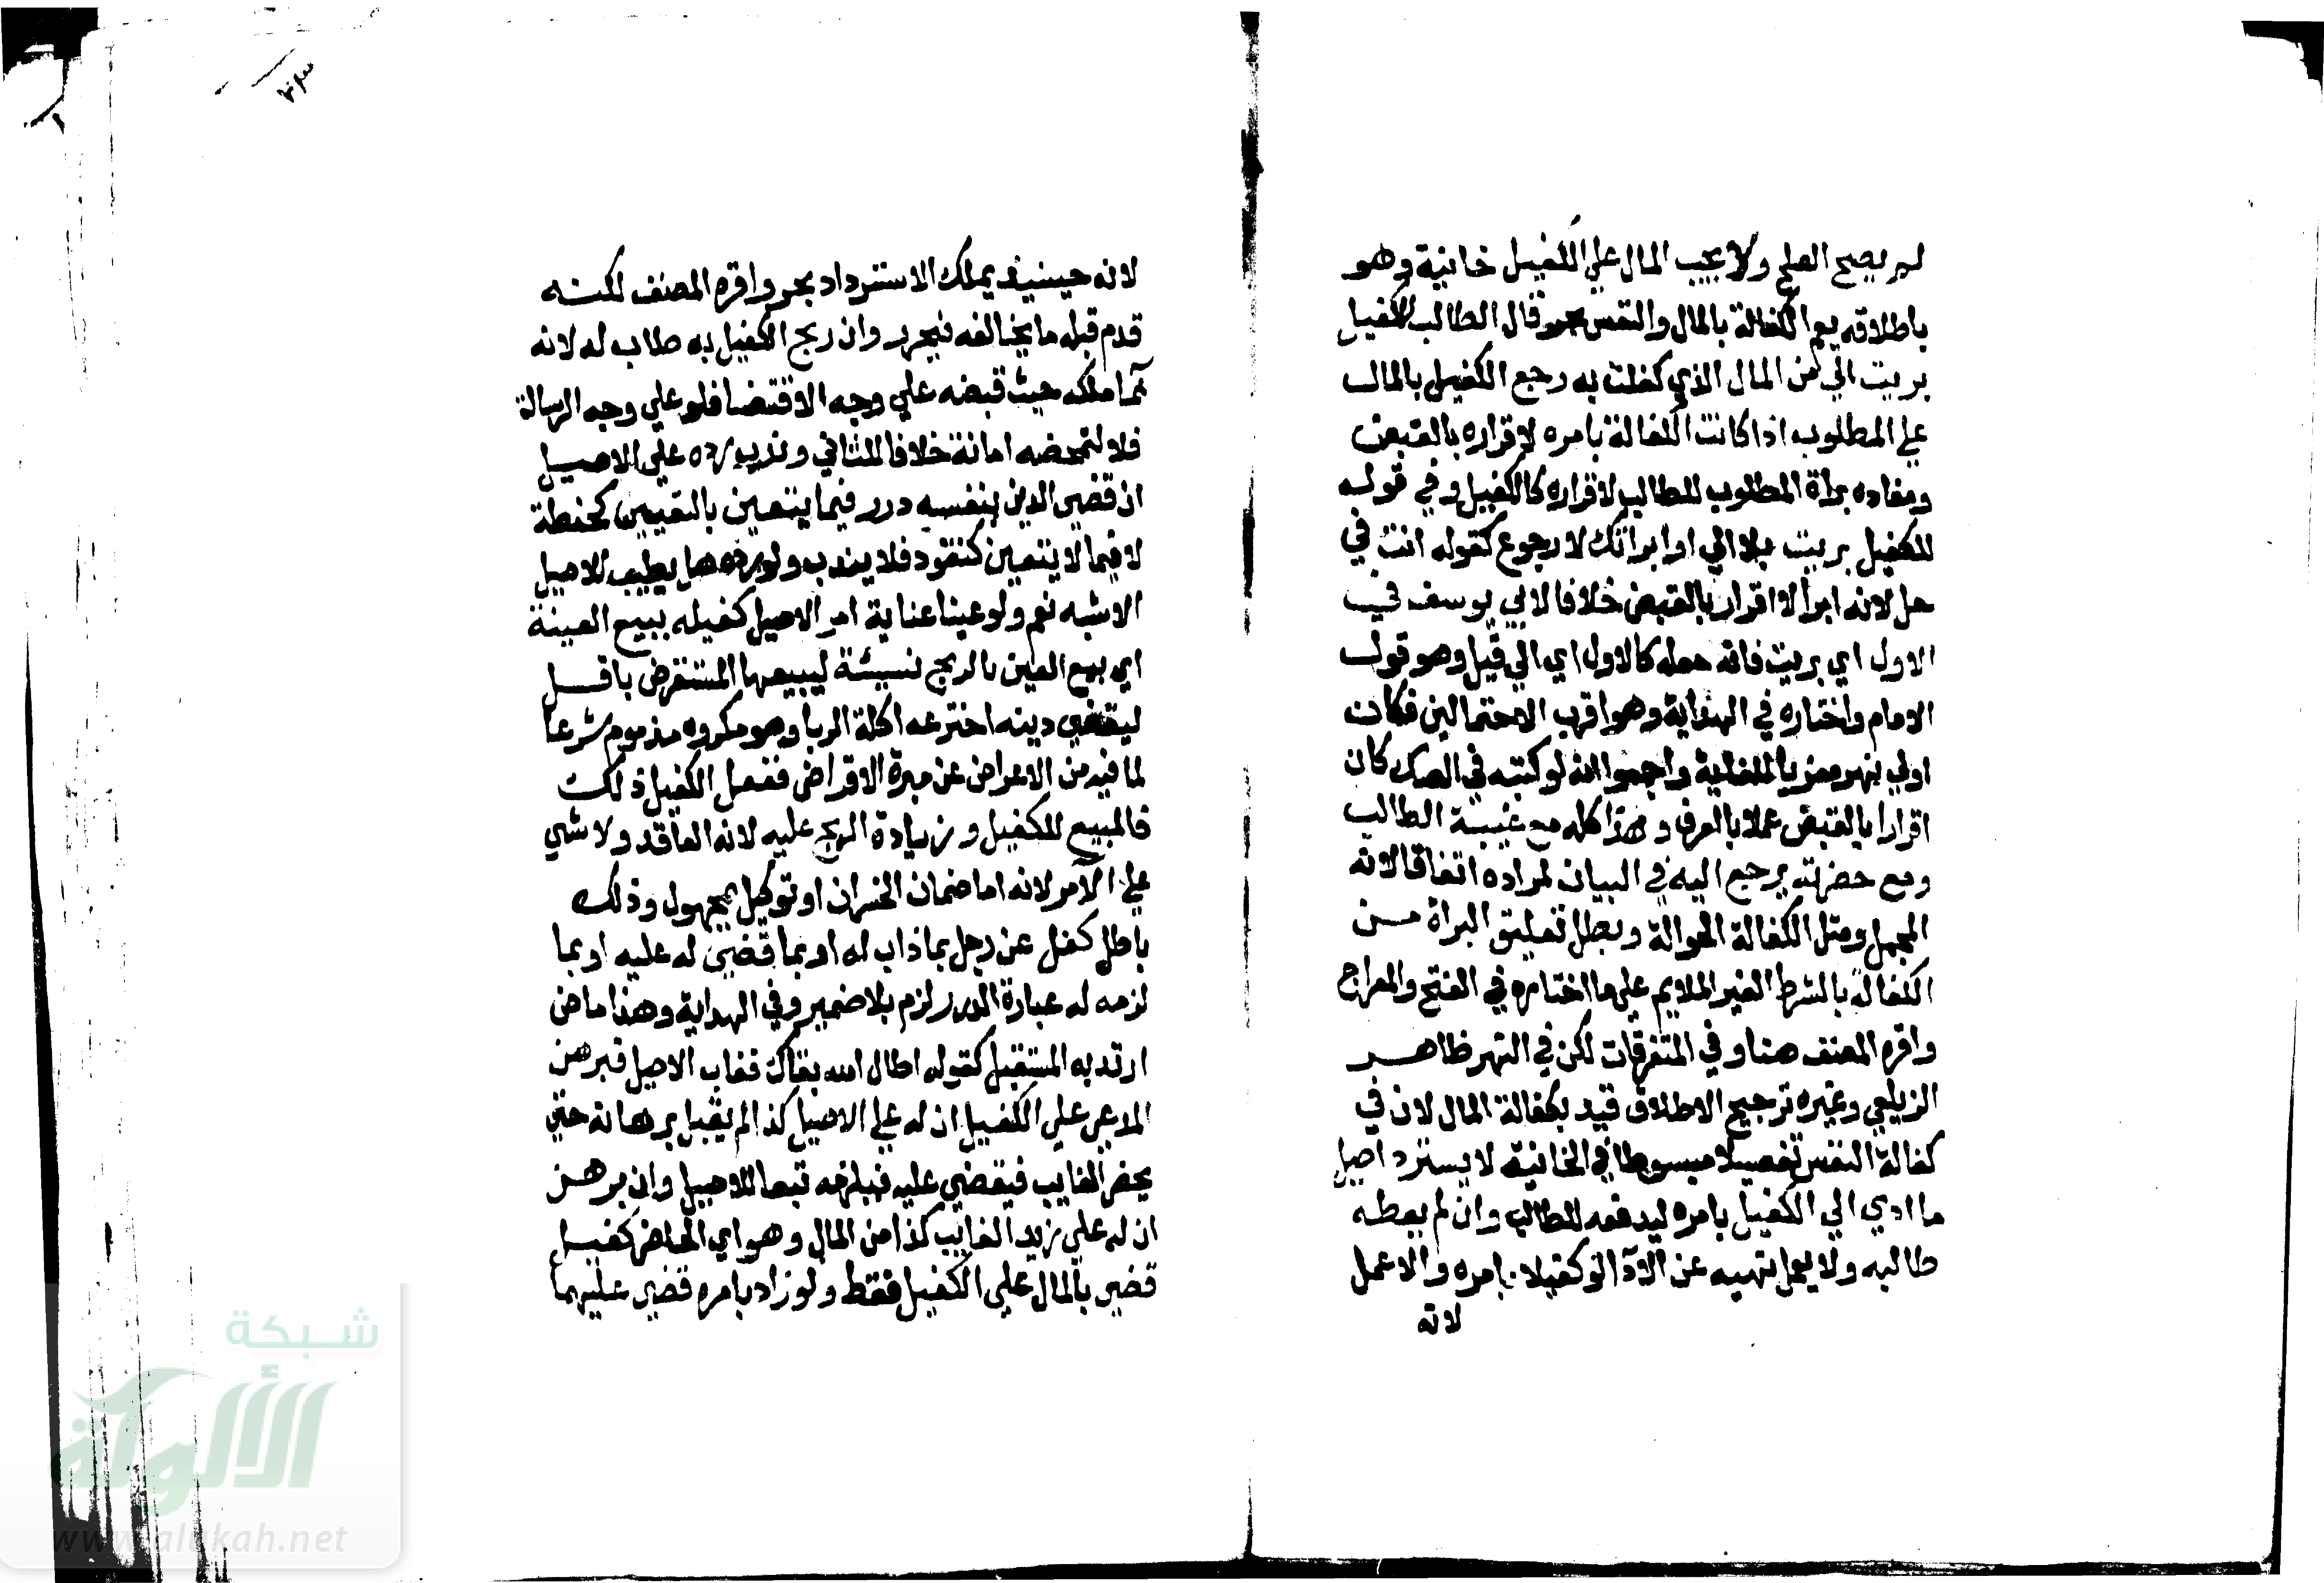 لم يصح الصلح ولا يجب المال علي الكفيل خانية وهو
باطلاقه يعم الكفالة بالمال والنفس بحر قال الطالب للكفيل
بريت الي من المال الذي كفلت به رجع الكفيل بالمال
علي المطلوب اذا كانت الكفالة بامره لاقراره بالقبض
ومفاده براة المطلوب للطالب لاقراره كالكفيل وفي قوله
للكفيل بريت بلا الي او ابراتك لا رجوع كقوله انت في
حل لانه ابرا لا اقرار بالقبض خلافا لابي يوسف في
الاول اي بريت فانه جعله كالاول اي الي قيل وهو قول
الامام واختاره في الهداية وهو اقرب الاحتمالين فكان
اولي نهر معزيا للعناية واجمعوا انه لو كتبه في الصك كان
اقرارا بالقبض عملا بالعرف وهذا كله مع غيبة الطالب
ومع حضرته يرجع اليه في البيان لمراده اتفاقا لانه
المجمل ومثل الكفالة الحوالة وبطل تعليق البراة من
الكفالة بالشرط الغير الملايم علي ما اختاره في الفتح والمعراج
واقره المصنف هنا وفي المتفرقات لكن في النهر ظاهر
الزيلعي وغيره ترجيح الاطلاق قيد بكفالة المال لان في
كفالة النفس تفصيلا مبسوطا في الخانية لا يسترد اصيل
ما ادي الي الكفيل بامره ليدفعه للطالب وان لم يعطه
طالبه ولا يعمل نهيه عن الادا لو كفيلا بامره والا عمل
لانه
لانه حينيذ يملك الاسترداد بحر واقره المصنف لكنه
قدم قبله ما يخالفه فيحرر وان ربح الكفيل به طاب له لانه
نما ملكه حيث قبضه علي وجه الاقتضا فلو علي وجه الرسالة
فلا لتمحضه امانة خلافا للثاني وندب رده علي الاصيل
ان قضي الدين بنفسه درر فيما يتعين بالتعيين كحنطة
لا فيما لا يتعين كنقود فلا يندب ولو رده هل يطيب للاصيل
الاشبه نعم ولو غنيا عناية امر الاصيل كفيله ببيع العينة
اي بيع العين بالربح نسيئة ليبيعها المستقرض باقل
ليقضي دينه اخترعه اكلة الربا وهو مكروه مذموم شرعا
لما فيه من الاعراض عن مبرة الاقراض ففعل الكفيل ذلك
فالمبيع للكفيل وزيادة الربح عليه لانه العاقد ولا شي
علي الآمر لانه اما ضمان الخسران او توكيل بمجهول وذلك
باطل كفل عن رجل بما ذاب له او بما قضي له عليه او بما
لزمه له عبارة الدرر لزم بلا ضمير وفي الهداية وهذا ماض
اريد به المستقبل كقوله اطال الله بقاك فغاب الاصيل فبرهن
المدعي علي الكفيل ان له علي الاصيل كذا لم يقبل برهانه حتي
يحضر الغايب فيقضي عليه فيلزمه تبعا للاصيل وان برهن
ان له علي زيد الغايب كذا من المال وهو اي الحاضر كفيل
قضي بالمال علي الكفيل فقط ولو زاد بامره قضي عليهما
شبكة
الألوكة
www.alukah.net